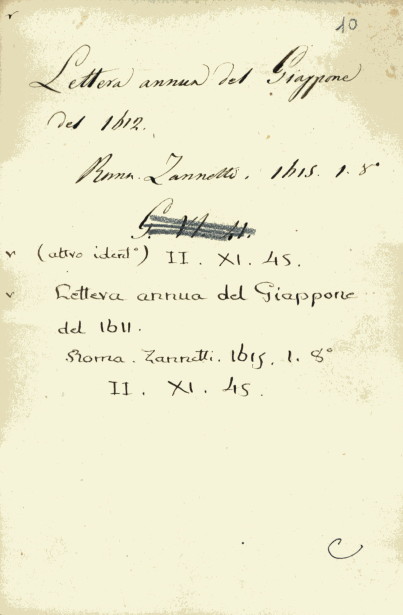 10
Lettera annua del Giappone
del 1612.
Roma. Zannetti. 1615. 1. 8°
G. VI. 41.
(altro ident°) II. XI. 45.
Lettera annua del Giappone
del 1611.
Roma. Zannetti. 1615. 1. 8°
II. XI. 45.
C